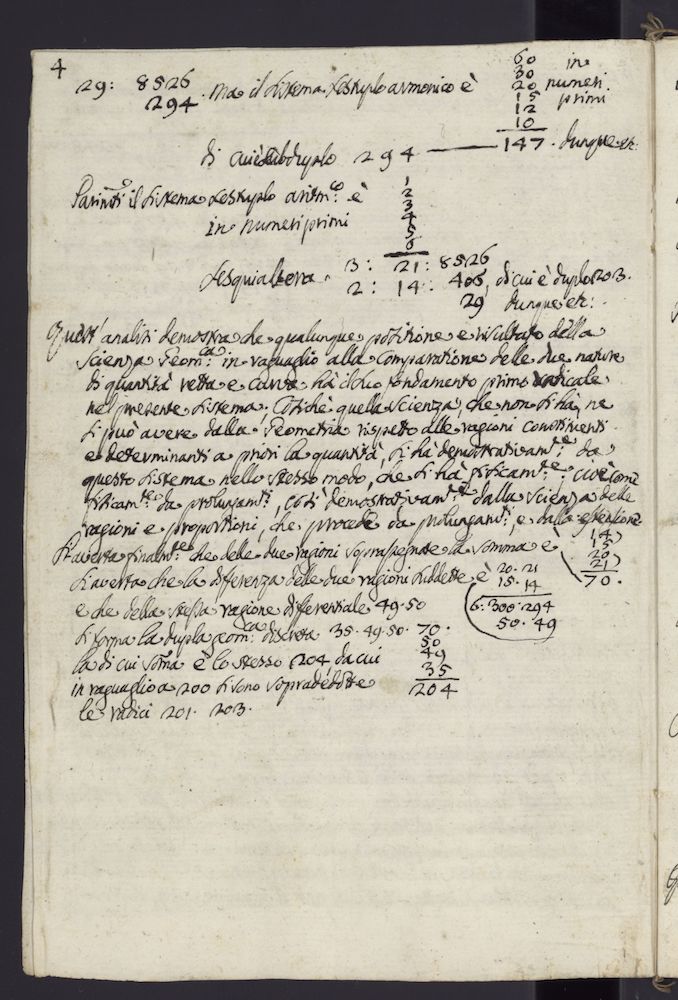 4
29: 8526
294. ma il sistema sestuplo armonico è
60 in
30
20 numeri
15 primi
12
10
147. dunque etc:
di cui è subduplo 294
Parim.ti il sistema sestuplo aritm.co è
in numeri primi
1
2
3
4
5
6
sesquialtera. 3: 21: 8526
2: 14: 406, di cui è duplo 203.
29 dunque etc:
Quest'analisi demostra che qualunque positione e risultato della
scienza Geom.ca in raguaglio alla comparatione delle due nature
di quantità retta e curva hà il suo fondamento primo radicale
nel presente sistema. Cosichè quella scienza, che non si hà, ne
si può avere dalla Geometria rispeto alle ragioni constituenti
e determinanti a priori la quantità, si hà demostrativam.te da
questo sistema nello stesso modo, che si hà fisicam.te; cioè come
fisicam.te da prolungam.ti, così demostrativam.te dalla scienza delle
ragioni e proportioni, che procede da prolungam.ti, e dalla estensione
Si averta finalm.te che delle due ragioni soprasegnate la somma è
14
15
20
21
70.
si averta che la diferenza delle due ragioni suddette è 20. 21
15. 14
6: 300. 294
50. 49
e che della stessa ragione differentiale 49. 50
si forma la dupla geom.ca discreta 35. 49. 50. 70.
50
49
35
204
la di cui soma è lo stesso 204 da cui
in raguaglio a 200 si sono sopradedotte
le radici 201. 203.